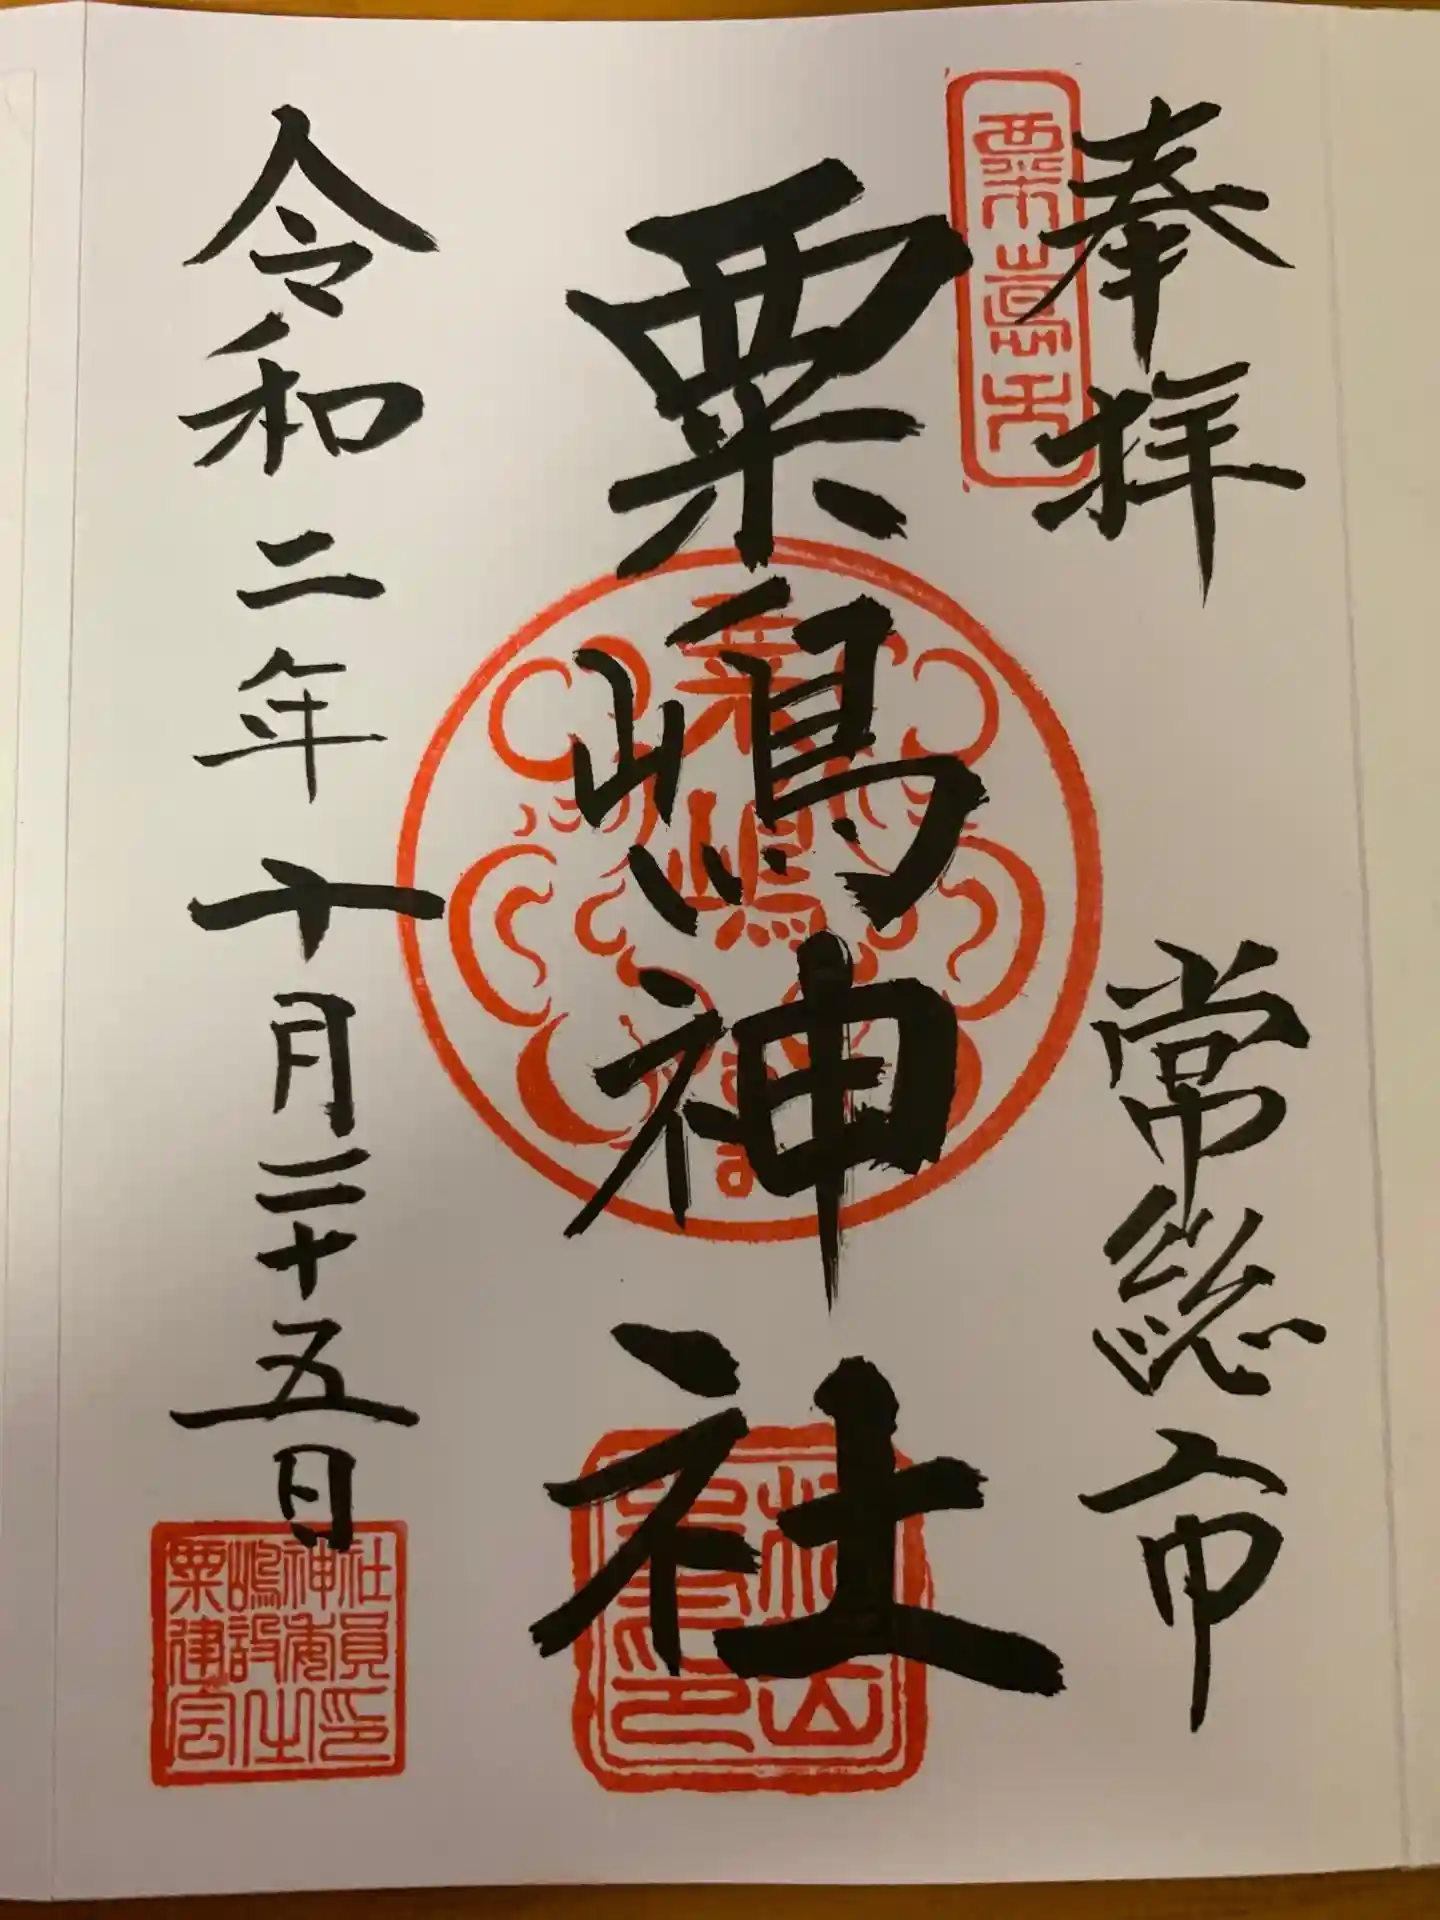 奉拝
常総市
粟嶋神社
令和二年十月二十五日
粟嶋